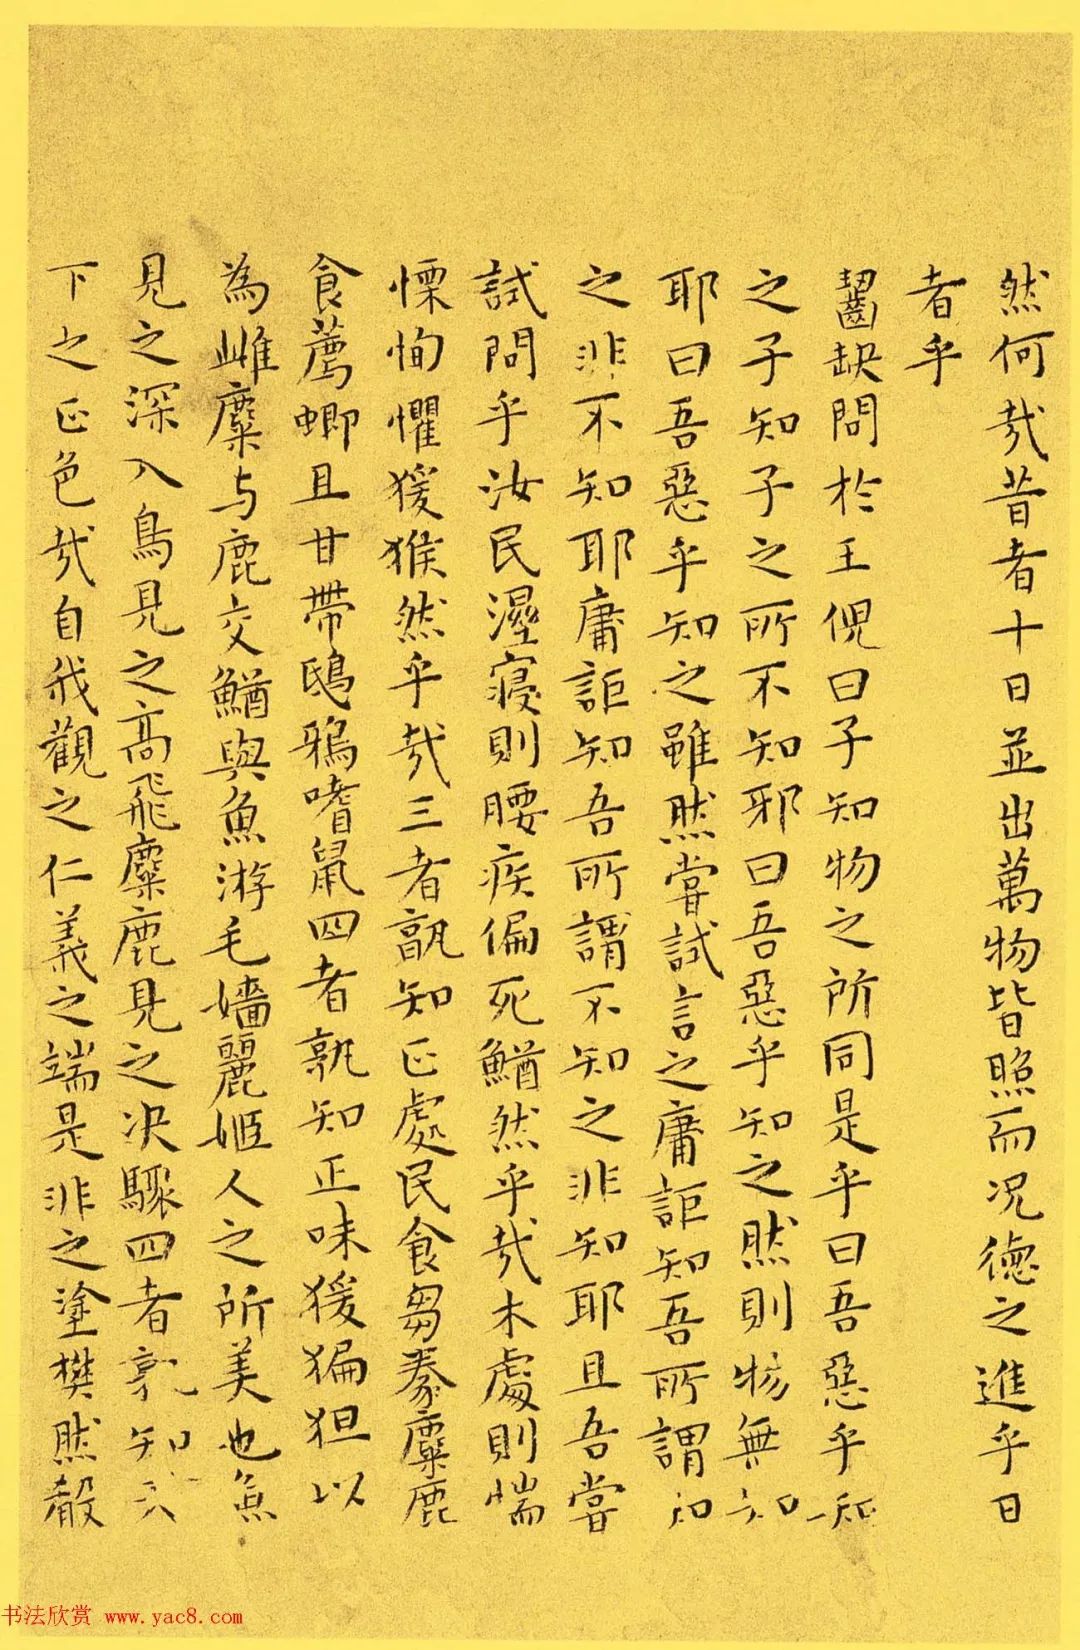 然何哉昔者十日並出萬物皆照而况德之進乎日
者乎
齧缺問於王倪曰子知物之所同是乎曰吾惡乎知
之子知子之所不知邪曰吾惡乎知之然則物無知
耶曰吾惡乎知之雖然嘗試言之庸詎知吾所謂知
之非不知耶庸詎知吾所謂不知之非知耶且吾嘗
試問乎汝民溼寢則腰疾偏死鰌然乎哉木處則惴
慄恂懼猨猴然乎哉三者孰知正處民食芻豢麋鹿
食薦蝍且甘帶鴟鴉嗜鼠四者孰知正味猨猵狙以
為雌麋与鹿交鰌與魚游毛嬙麗姬人之所美也魚
見之深入鳥見之高飛麋鹿見之决驟四者孰知天
下之正色哉自我觀之仁義之端是非之塗樊然殽
书法欣赏 www.yac8.com